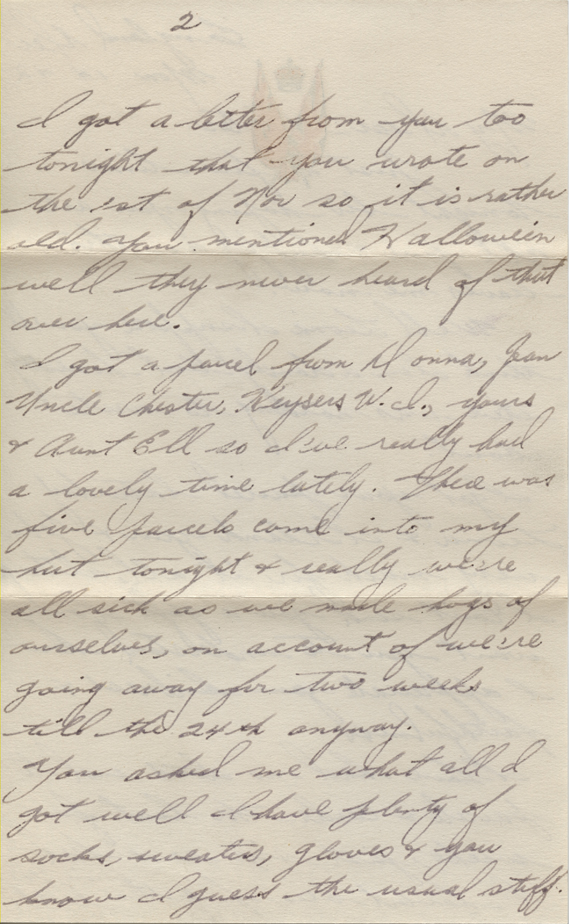 2
I got a letter from you too
tonight that you wrote on
the 1st of Nov so it is rather
old. You mentioned Halloween
well they never heard of that
over here.
I got a parcel from Donna, Jean
Uncle Chester, Keysers W.I., yours
& Aunt Ell so I've really had
a lovely time lately. There was
five parcels come into my
hut tonight & really we're
all sick as we made hogs of
ourselves, on account of we're
going away for two weeks
till the 24th anyway.
You asked me what all I
got well I have plenty of
socks, sweaters, gloves & you
know I guess the usual stuff.